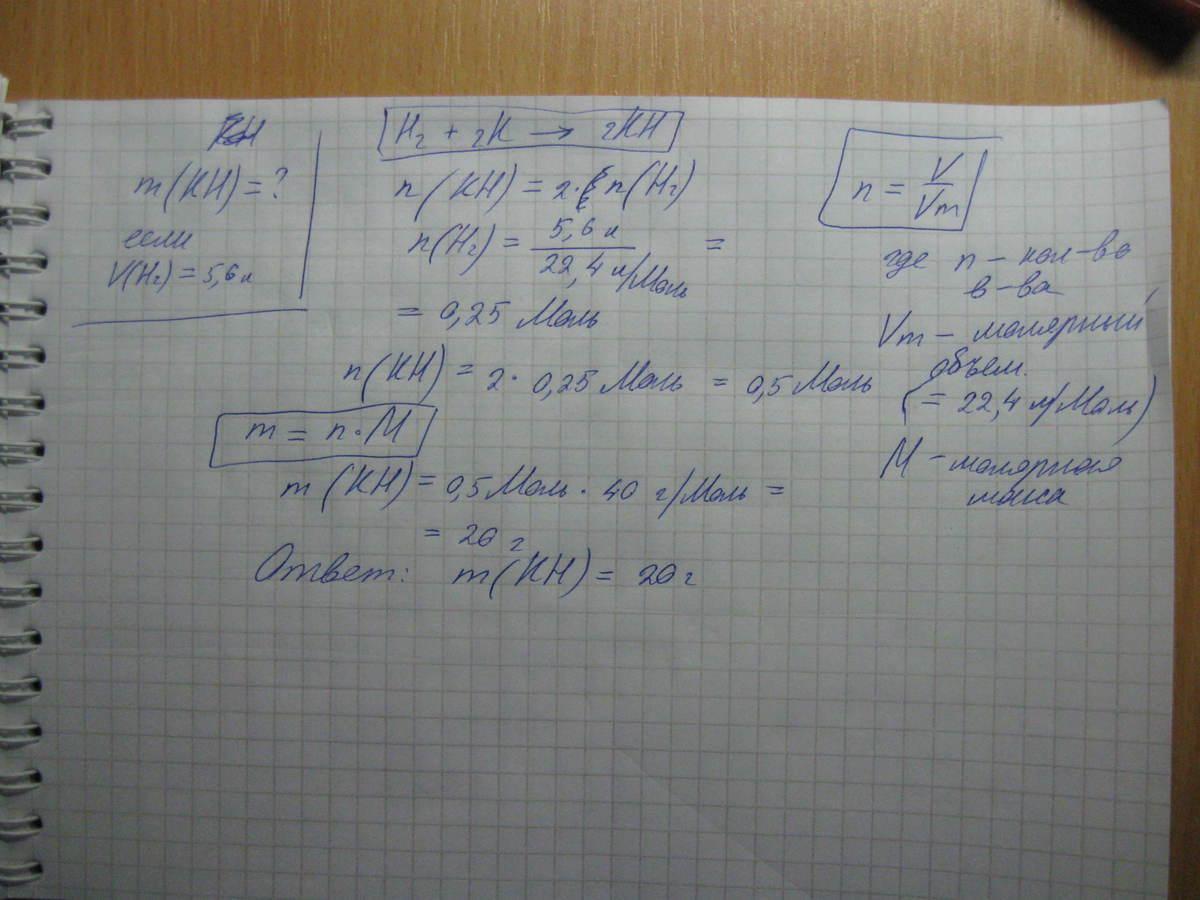 m(KH) = ?
если
V(H₂) = 5,6 л
H₂ + 2K → 2KH
n(KH) = 2 · n(H₂)
n(H₂) = 5,6 л / 22,4 л/Моль =
= 0,25 Моль
n(KH) = 2 · 0,25 Моль = 0,5 Моль
m = n · M
m(KH) = 0,5 Моль · 40 г/Моль =
= 20 г
Ответ: m(KH) = 20 г
n = V / Vm
где n – кол-во
в-ва
Vm – молярный
объем.
(= 22,4 л/Моль)
M – молярная
масса